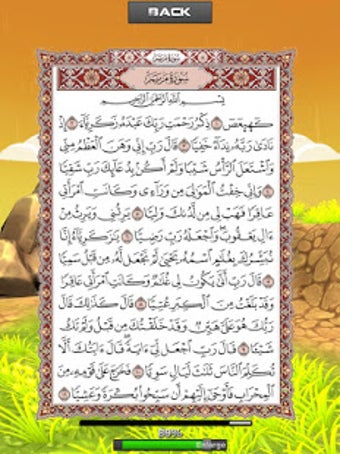 BACK
سُورَةُ مَرْيَمَ
سُورَةُ مَرْيَمَ
بِسْمِ اللَّهِ الرَّحْمَٰنِ الرَّحِيمِ
كهيعص ١ ذِكْرُ رَحْمَتِ رَبِّكَ عَبْدَهُ زَكَرِيَّا ٢ إِذْ
نَادَىٰ رَبَّهُ نِدَاءً خَفِيًّا ٣ قَالَ رَبِّ إِنِّي وَهَنَ الْعَظْمُ مِنِّي
وَاشْتَعَلَ الرَّأْسُ شَيْبًا وَلَمْ أَكُنْ بِدُعَائِكَ رَبِّ شَقِيًّا
٤ وَإِنِّي خِفْتُ الْمَوَالِيَ مِنْ وَرَاءِي وَكَانَتِ امْرَأَتِي
عَاقِرًا فَهَبْ لِي مِنْ لَدُنْكَ وَلِيًّا ٥ يَرِثُنِي وَيَرِثُ مِنْ
آلِ يَعْقُوبَ وَاجْعَلْهُ رَبِّ رَضِيًّا ٦ يَا زَكَرِيَّا إِنَّا
نُبَشِّرُكَ بِغُلَامٍ اسْمُهُ يَحْيَىٰ لَمْ نَجْعَلْ لَهُ مِنْ قَبْلُ سَمِيًّا
٧ قَالَ رَبِّ أَنَّىٰ يَكُونُ لِي غُلَامٌ وَكَانَتِ امْرَأَتِي عَاقِرًا
وَقَدْ بَلَغْتُ مِنَ الْكِبَرِ عِتِيًّا ٨ قَالَ كَذَٰلِكَ قَالَ
رَبُّكَ هُوَ عَلَيَّ هَيِّنٌ وَقَدْ خَلَقْتُكَ مِنْ قَبْلُ وَلَمْ تَكُ
شَيْئًا ٩ قَالَ رَبِّ اجْعَلْ لِي آيَةً قَالَ آيَتُكَ أَلَّا
تُكَلِّمَ النَّاسَ ثَلَاثَ لَيَالٍ سَوِيًّا ١٠ فَخَرَجَ عَلَىٰ قَوْمِهِ مِنَ
الْمِحْرَابِ فَأَوْحَىٰ إِلَيْهِمْ أَنْ سَبِّحُوا بُكْرَةً وَعَشِيًّا ١١
Enlarge